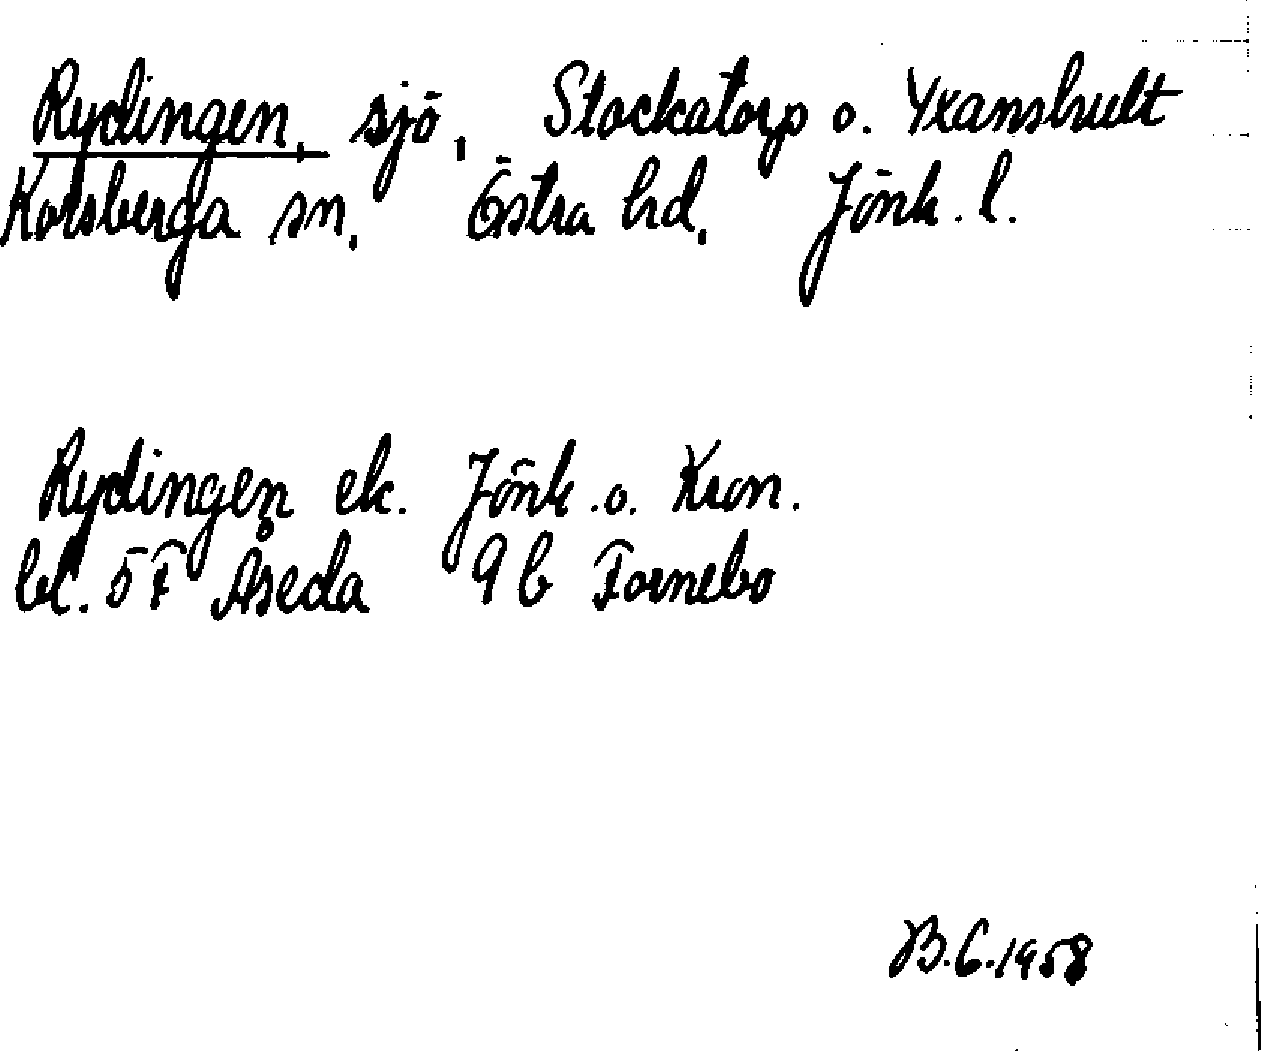 Rydingen, sjö, Stockatorp o. Yxanshult
Korsberga sn. Östra hd. Jönk. l.
Rydingen ek. Jönk. o. Kron.
bl. 5F Åseda 9 b Fornebo
B.G.1958